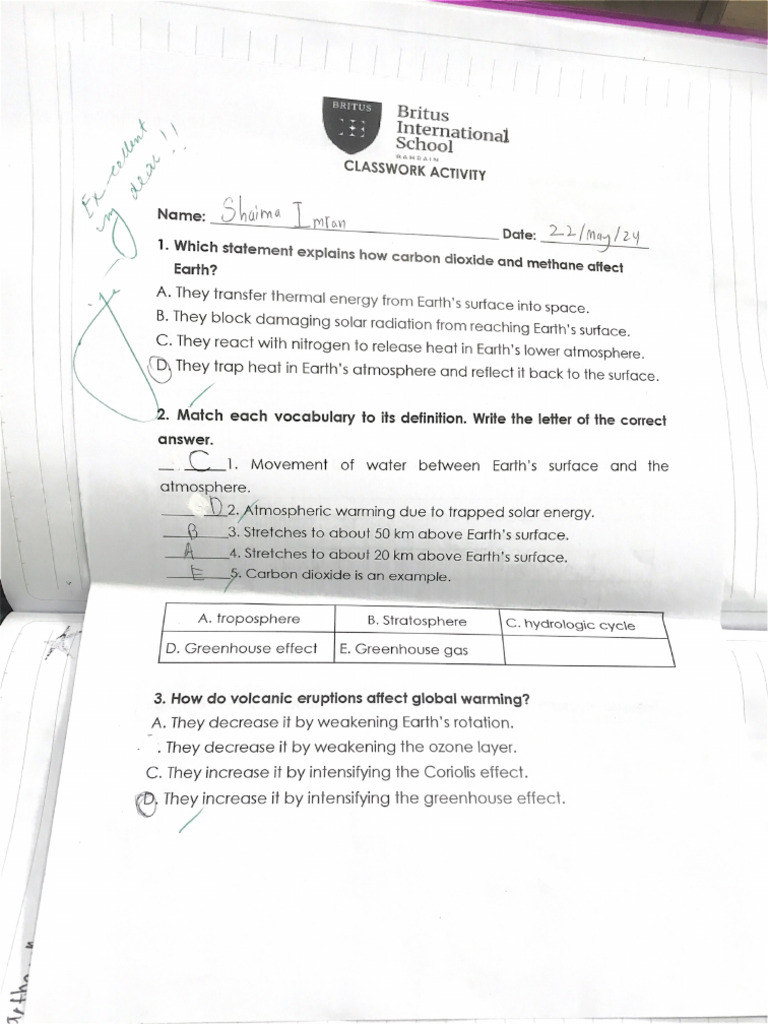 BRITUS
Britus
International
School
BAHRAIN
CLASSWORK ACTIVITY
Excellent
my dear!!
Name: Shaima Imran
Date: 22/May/24
1. Which statement explains how carbon dioxide and methane affect
Earth?
A. They transfer thermal energy from Earth's surface into space.
B. They block damaging solar radiation from reaching Earth's surface.
C. They react with nitrogen to release heat in Earth's lower atmosphere.
D. They trap heat in Earth's atmosphere and reflect it back to the surface.
2. Match each vocabulary to its definition. Write the letter of the correct
answer.
C 1. Movement of water between Earth's surface and the
atmosphere.
D 2. Atmospheric warming due to trapped solar energy.
B 3. Stretches to about 50 km above Earth's surface.
A 4. Stretches to about 20 km above Earth's surface.
E 5. Carbon dioxide is an example.
A. troposphere B. Stratosphere C. hydrologic cycle
D. Greenhouse effect E. Greenhouse gas
3. How do volcanic eruptions affect global warming?
A. They decrease it by weakening Earth's rotation.
. They decrease it by weakening the ozone layer.
C. They increase it by intensifying the Coriolis effect.
D. They increase it by intensifying the greenhouse effect.